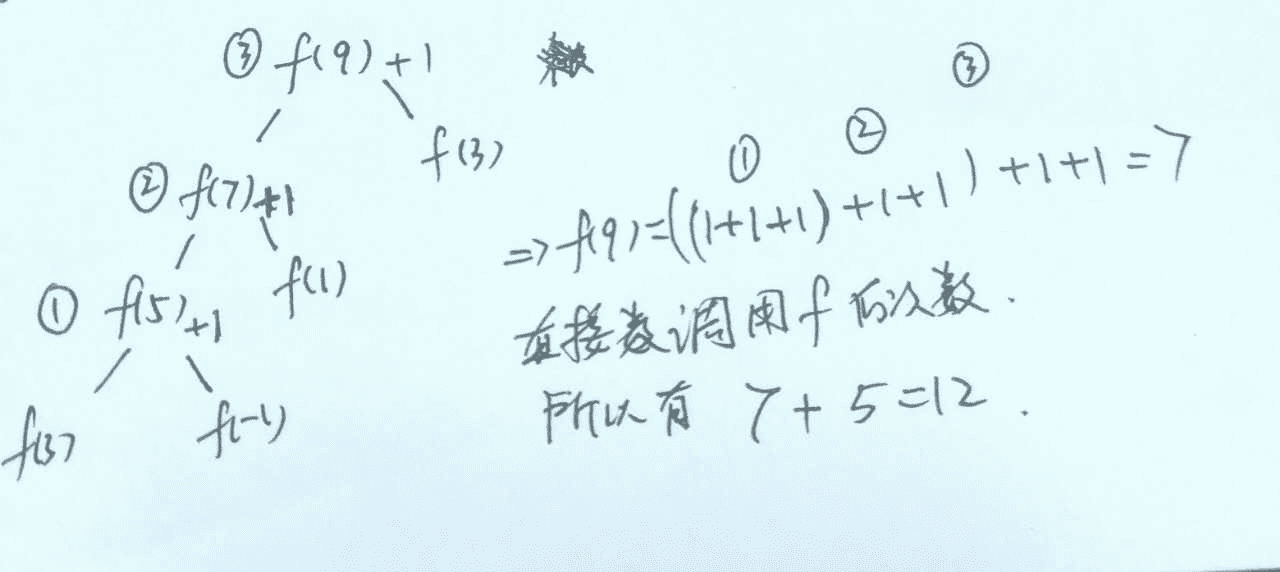 ③ f(9)+1
f(3)
② f(7)+1
f(1)
① f(5)+1
f(3)
f(-1)
① ② ③
=> f(9)=((1+1+1)+1+1)+1+1=7
直接数调用f的次数.
所以有 7+5=12.